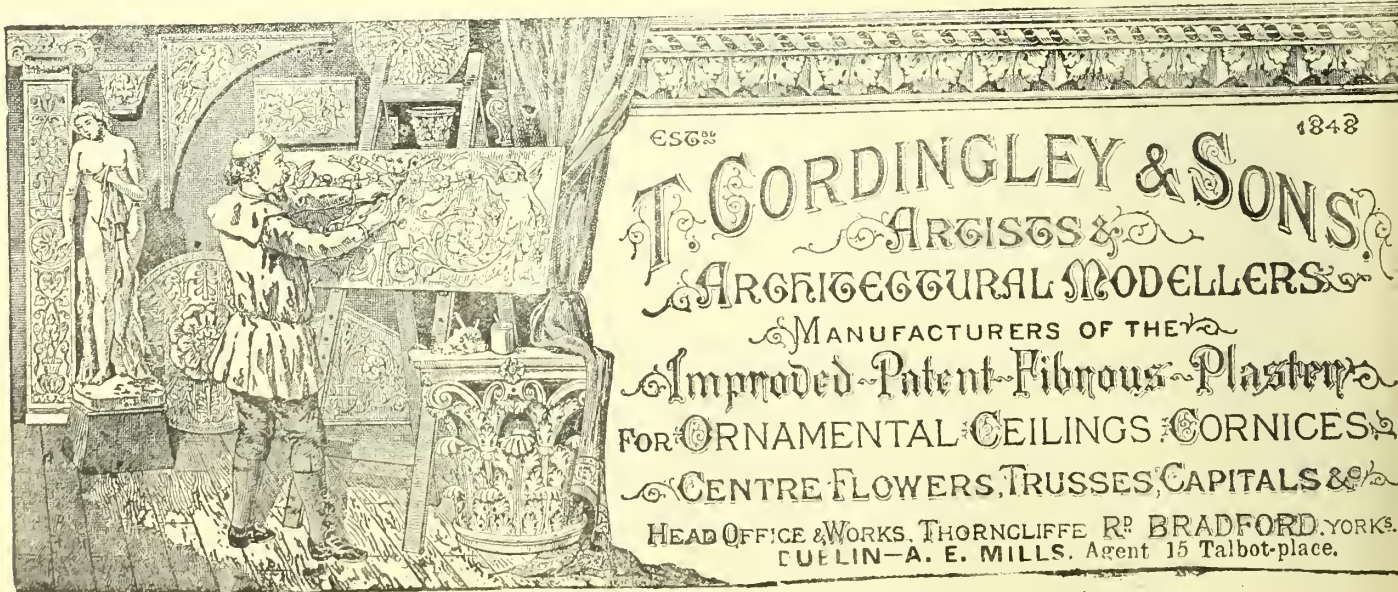 ESTBD 1848
T. CORDINGLEY & SONS
ARTISTS &
ARCHITECTURAL MODELLERS
MANUFACTURERS OF THE
Improved Patent Fibrous Plaster
FOR ORNAMENTAL CEILINGS CORNICES
CENTRE FLOWERS, TRUSSES, CAPITALS &c
HEAD OFFICE & WORKS. THORNCLIFFE RD. BRADFORD. YORKS.
DUBLIN—A. E. MILLS. Agent 15 Talbot-place.